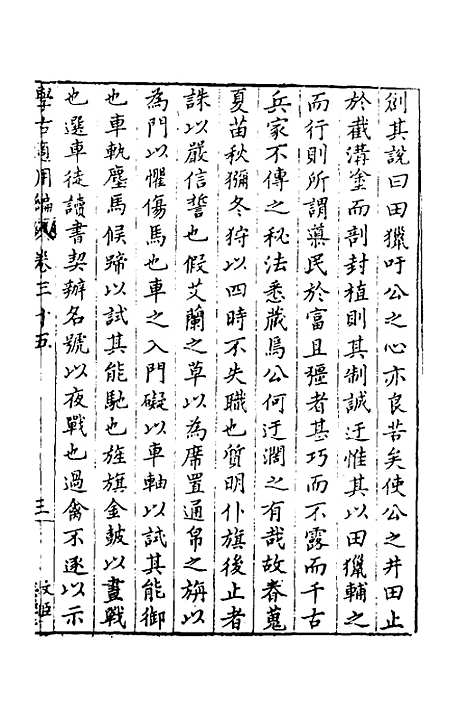 創其說曰田獵吁公之心亦良苦矣使公之井田止
於截溝塗而剖封植則其制誠迂惟其以田獵輔之
而行則所謂藥民於富且彊者甚巧而不露而千古
兵家不傳之秘法悉藏焉公何迂濶之有哉故春蒐
夏苗秋獮冬狩以四時不失職也質明仆旗後止者
誅以嚴信誓也假艾蘭之草以為席置通帛之旃以
為門以懼傷馬也車之入門礙以車軸以試其能御
也車軌塵馬候蹄以試其能馳也旌旗金鼓以晝戰
也選車徒讀書契辨名號以夜戰也過禽不逐以示
學古適用編 卷三十五 三